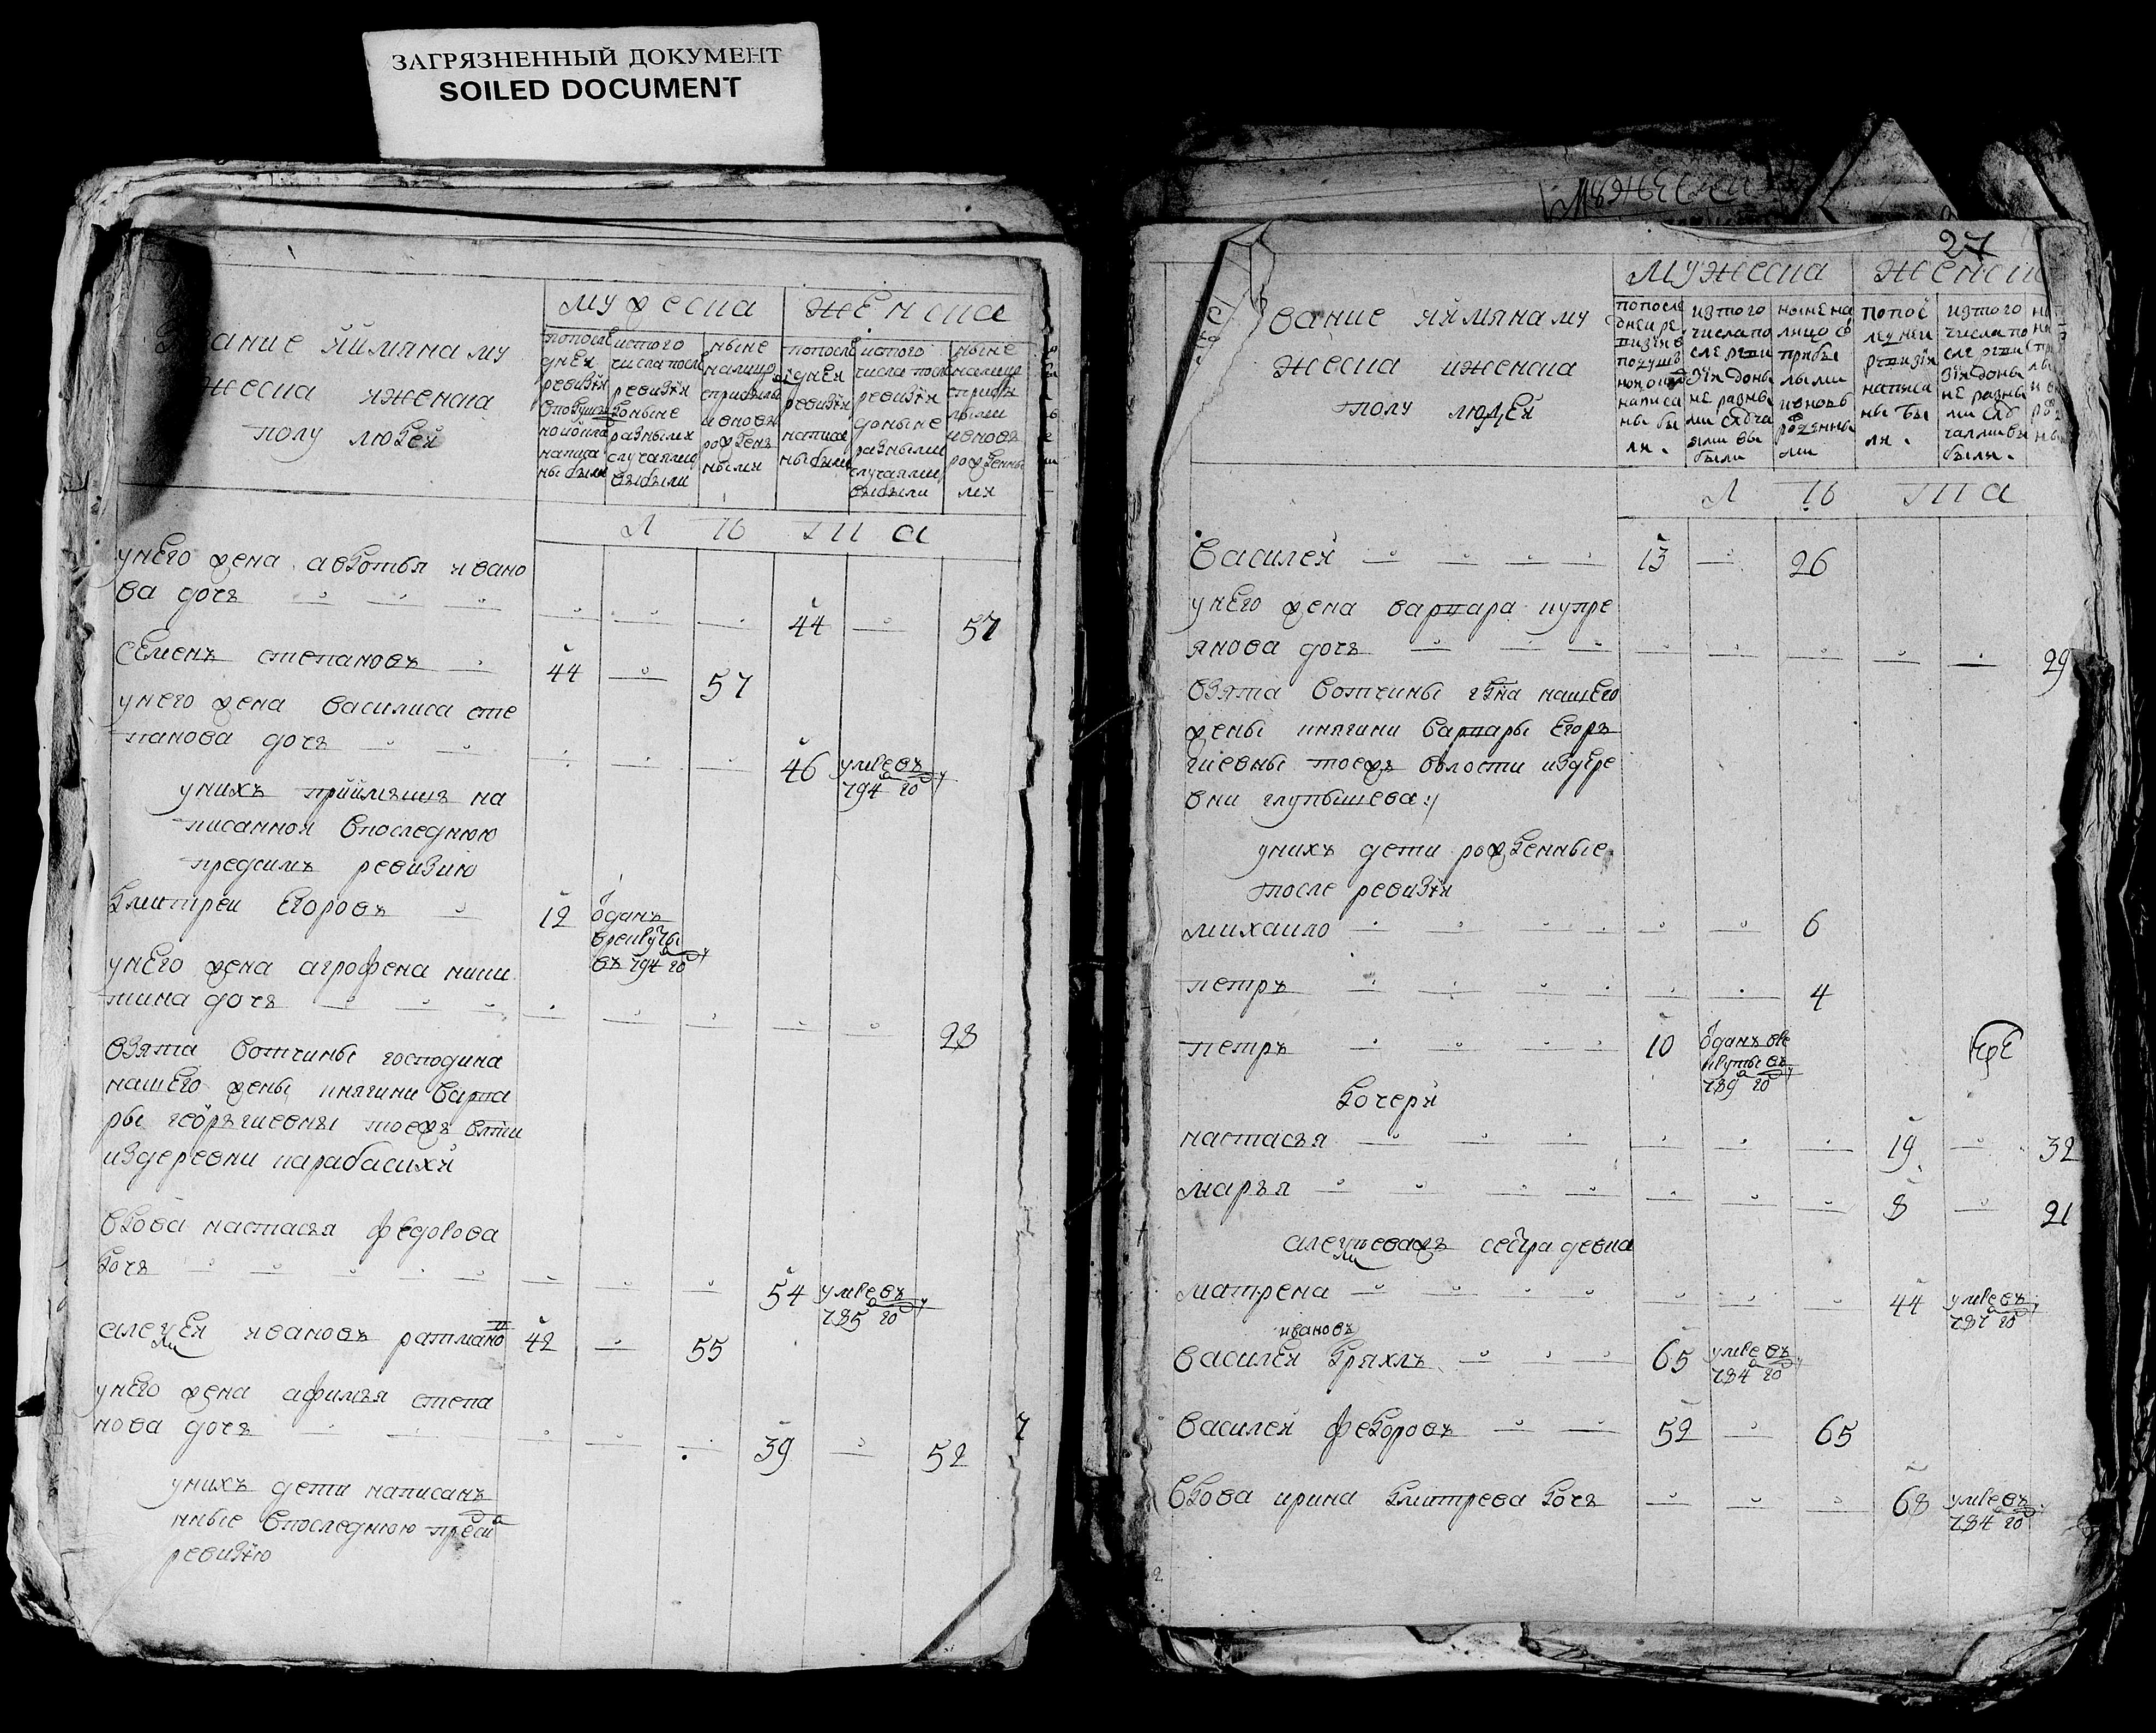 ЗАГРЯЗНЕННЫЙ ДОКУМЕНТ
SOILED DOCUMENT
звание и имяна му
жеска и женска
полу людей
мужеска
женска
попослѣ
дней
ревизіи
вподушъ
ной окла
написа
ны были
истого
числа после
ревизіи
доныне
разными
случаями
выбыли
ныне
налицо
сприбылы
ивновь
рожден
ными
попослѣ
дней
ревизіи
написа
ны были
истого
числа после
ревизіи
доныне
разными
случаями
выбыли
ныне
налицо
сприбы
лыми
ивновь
рожденны
ми
лѣта
унего жена авдотья ивано
ва дочь 44 57
семенъ степановъ 44 57
унего жена василиса сте
панова дочь 46 умре въ
794 году
унихъ приимышъ на
писанной впоследнюю
предсимъ ревизию
дмитреи егоровъ 12 отданъ
врекруты
въ 794 году
унего жена агрофена ники
тина дочь 28
взята вотчины господина
нашего жены княгини варва
ры георъгиевны тоежъ влсти
издеревни карабасихи
вдова настасья федорова
дочь 54 умре въ
785 году
алексѣй ивановъ ратмано 42 55
унего жена афимья степа
нова дочь 39 52
унихъ дети написанъ
нные впоследнюю предсим
ревизію
27
мужеска
женска
звание и имяна му
жеска и женска
полу людей
попосле
дней ре
визіи в
подушъ
ной окла
написа
ны бы
ли.
изтого
числа по
сле реви
зіи доны
не разны
ми случа
ями вы
были
ныне на
лицо с
прибы
лыми
ивновь
рожденны
ми
попос
ледней
ревизіи
написа
ны бы
ли.
изтого
числа по
сле реви
зіи доны
не разны
ми слу
чаями вы
были.
лѣта
василей 13 26
унего жена варвара купре
янова дочь 29
взята вотчины гдна нашего
жены княгини варвары егоръ
гиевны тоежъ волости издере
вни глупышева:
унихъ дети рожденные
после ревизіи
михаило 6
петръ 4
петръ 10 отданъ вре
круты въ
789 году
дочери
настасья 19 32
марья 8 21
алексѣеважъ сестра девка
матрена 44 умре въ
787 году
ивановъ
василей дряхлъ 65 умре въ
784 году
василей федоровъ 52 65
вдова ирина дмитрева дочь 68 умре въ
784 году